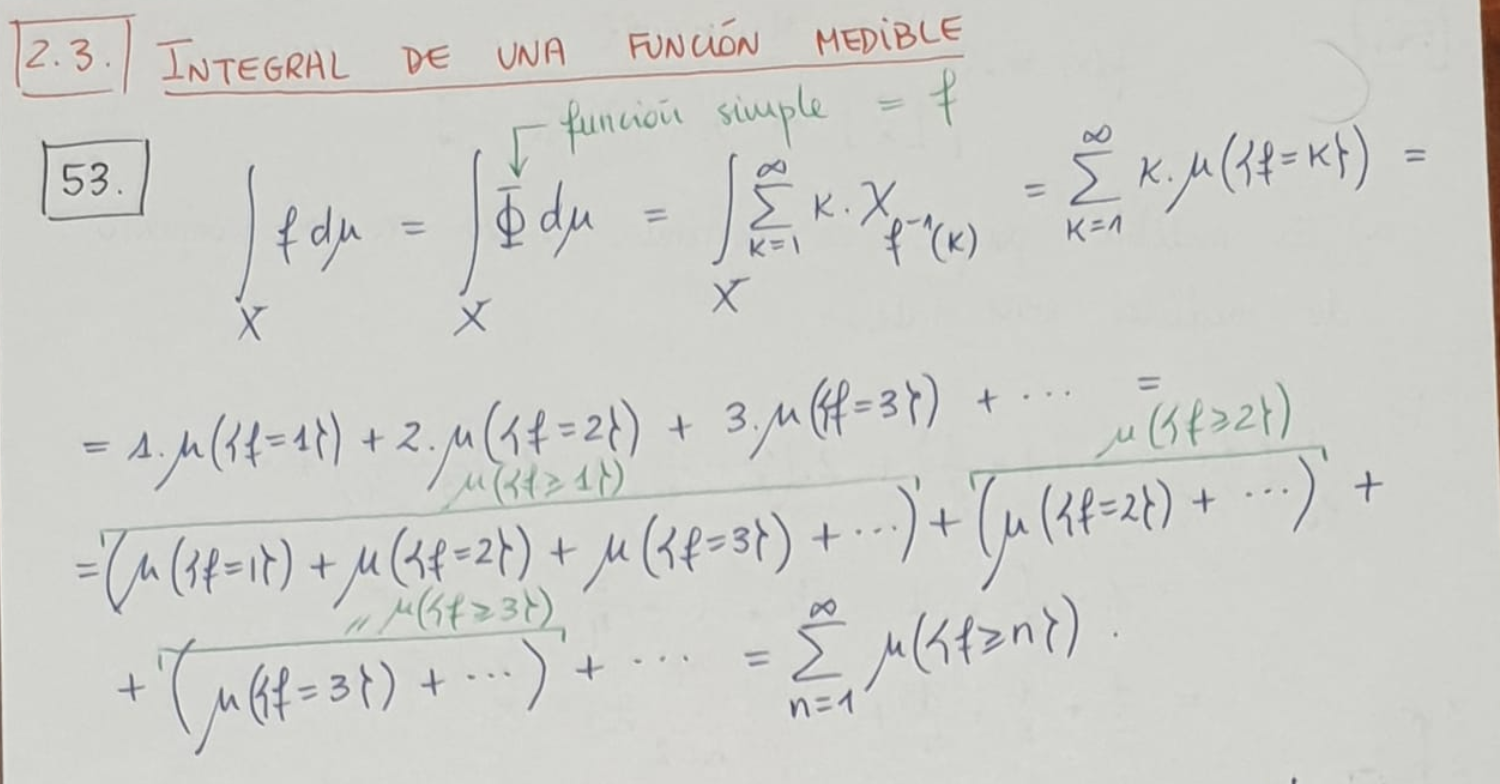 2.3. INTEGRAL DE UNA FUNCIÓN MEDIBLE
función simple = f
53. ∫_X f dμ = ∫_X Φ dμ = ∫_X ∑_{K=1}^∞ K · χ_{f⁻¹(K)} = ∑_{K=1}^∞ K · μ({f=K}) =
= 1·μ({f=1}) + 2·μ({f=2}) + 3·μ({f=3}) + ··· =
μ({f≥1}) μ({f≥2})
= (μ({f=1}) + μ({f=2}) + μ({f=3}) + ···) + (μ({f=2}) + ···) +
〃 μ({f≥3})
+ (μ({f=3}) + ···) + ··· = ∑_{n=1}^∞ μ({f≥n}).